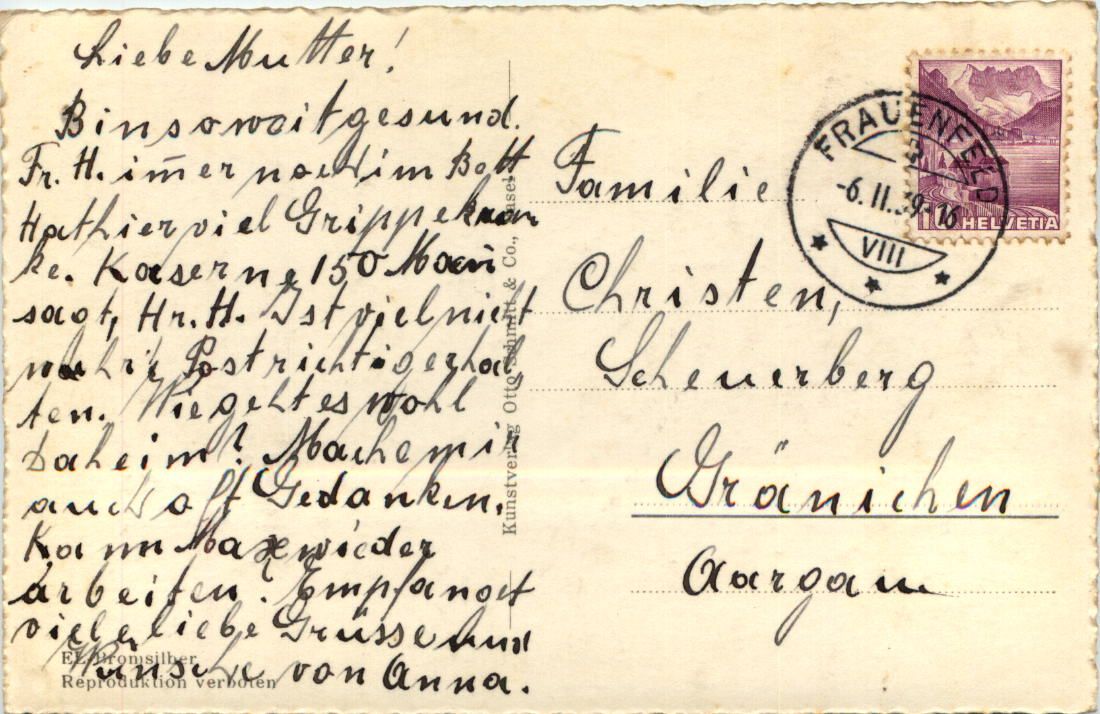 Liebe Mutter!
Binsoweitgesund.
Fr. H. im̄er noch im Bett
Hat hier viel Grippekran
ke. Kaserne 150 Mann
sagt, Hr. H. Ist viel nicht
Post richtig erhal
ten. Wie geht es wohl
Daheim? Mache mir
auch oft Gedanken.
Kann Max wieder
arbeiten? Empfanget
viele liebe Grüsse und
Wünsche von Anna.
EL Bromsilber
Reproduktion verboten
Kunstverlag Otto Schmitt & Co., Basel
Familie
Christen,
Scheuerberg
Gränichen
Aargau
FRAUENFELD
-6.II.39-16
VIII
10 HELVETIA